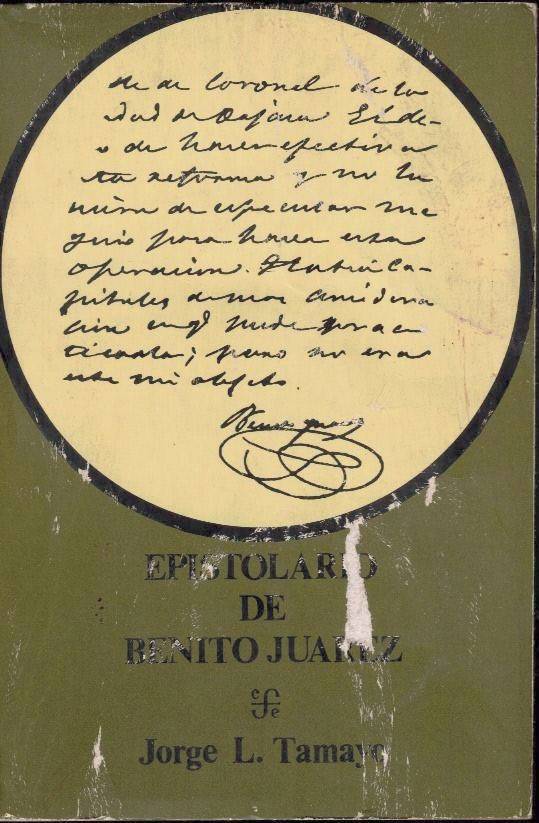 de de Coronel de la
idad de Oajaca El de-
o de hacer efectiva
ta reforma y no la
mira de especular me
guió para hacer esta
operacion. Habia Ca-
pitales de mas considera
cion en q.
ticarla; pero no era
este mi objeto.
Benito Juarez
EPISTOLARIO
DE
BENITO JUAREZ
cfe
Jorge L. Tamayo